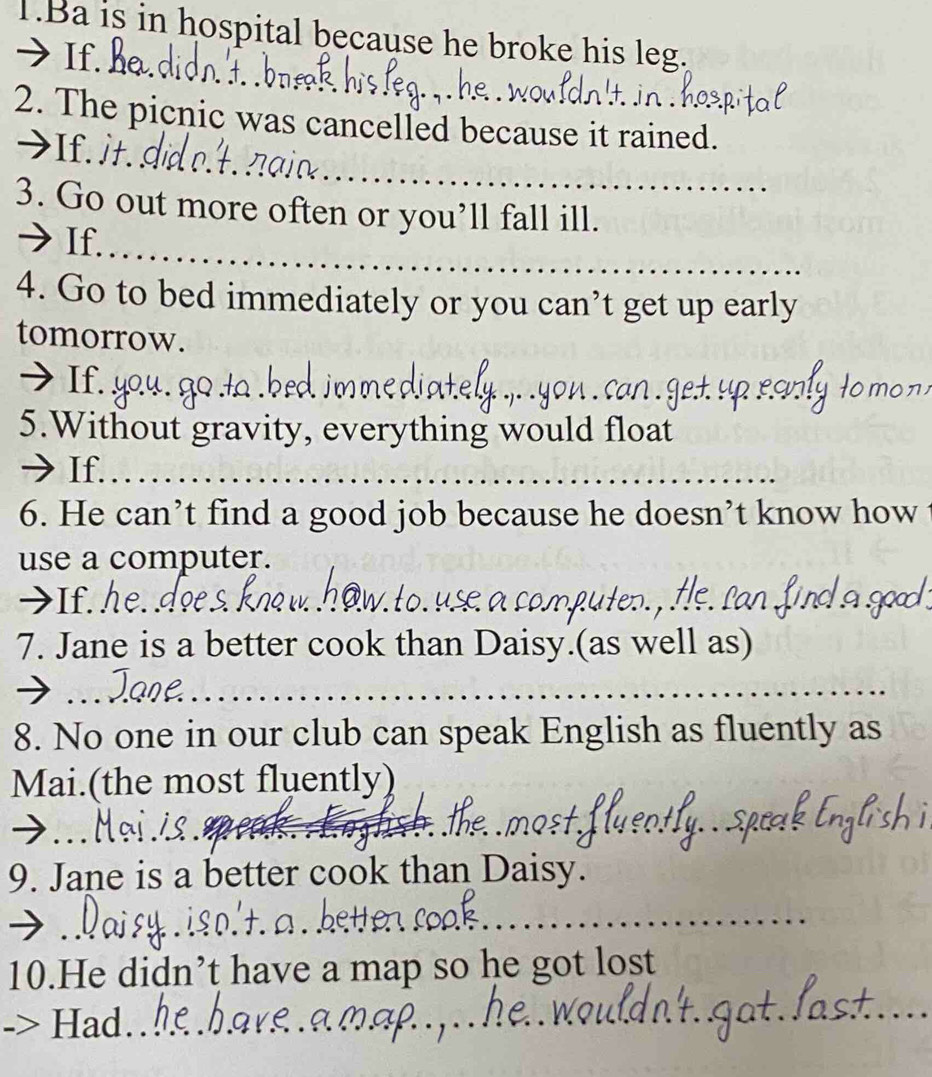 1.Ba is in hospital because he broke his leg.
→ If. Ba didn't break his leg, he wouldn't in hospital
2. The picnic was cancelled because it rained.
→If. it didn't rain
3. Go out more often or you'll fall ill.
→ If
4. Go to bed immediately or you can't get up early
tomorrow.
→ If. you go to bed immediately, you can get up early tomorr
5.Without gravity, everything would float
→ If
6. He can't find a good job because he doesn't know how
use a computer.
→If. he does know how to use a computer, He can find a good
7. Jane is a better cook than Daisy.(as well as)
→ Jane
8. No one in our club can speak English as fluently as
Mai.(the most fluently)
→ Mai is speak English the most fluently speak English i
9. Jane is a better cook than Daisy.
→ Daisy isn't a better cook
10.He didn't have a map so he got lost
-> Had he have a map, he wouldn't got last